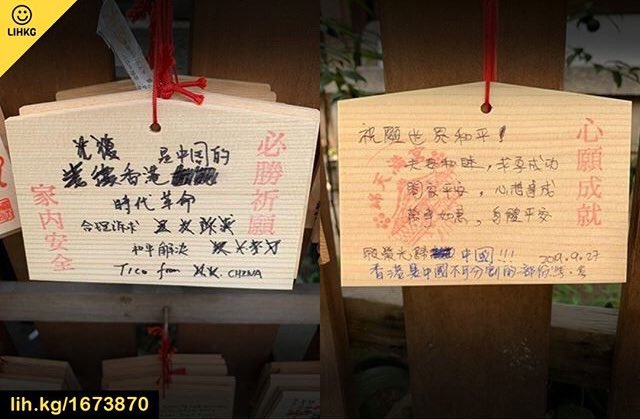 LIHKG
必勝祈願
家内安全
光復
是中國的
香港
時代革命
合理訴求
和平解決
Tico from H.K. CHINA
心願成就
祝願世界和平!
夫妻和睦，苹事成功
闔家平安，心想事成
萬事如意，身體平安
願榮光歸 中國!!! 2019.9.27
香港是中國不可分割的部份
lih.kg/1673870